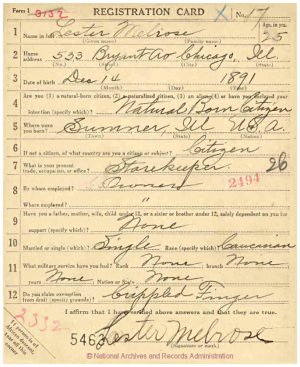 Form 1 3132 REGISTRATION CARD X No. 17
1 Name in full Lester Melrose Age, in yrs. 25
(Given name) (Family name)
2 Home address 533 Bryant Av Chicago, Ill.
(No.) (Street) (City) (State)
3 Date of birth Dec 14 1891
(Month) (Day) (Year)
4 Are you (1) a natural-born citizen, (2) a naturalized citizen, (3) an alien, (4) or have you declared your
intention (specify which)? Natural Born Citizen
5 Where were you born? Sumner, Ill U.S.A.
(Town) (State) (Nation)
6 If not a citizen, of what country are you a citizen or subject? Citizen
7 What is your present trade, occupation, or office? Storekeeper 26
2494
8 By whom employed? Owner
Where employed? "
9 Have you a father, mother, wife, child under 12, or a sister or brother under 12, solely dependent on you for
support (specify which)? None
10 Married or single (which)? Single Race (specify which)? Caucasian
11 What military service have you had? Rank None ; branch None
years None ; Nation or State None
12 Do you claim exemption from draft (specify grounds)? Crippled Finger
I affirm that I have verified above answers and that they are true.
2332
546 Lester Melrose
(Signature or mark)
If person is of African descent, tear off this corner
© National Archives and Records Administration